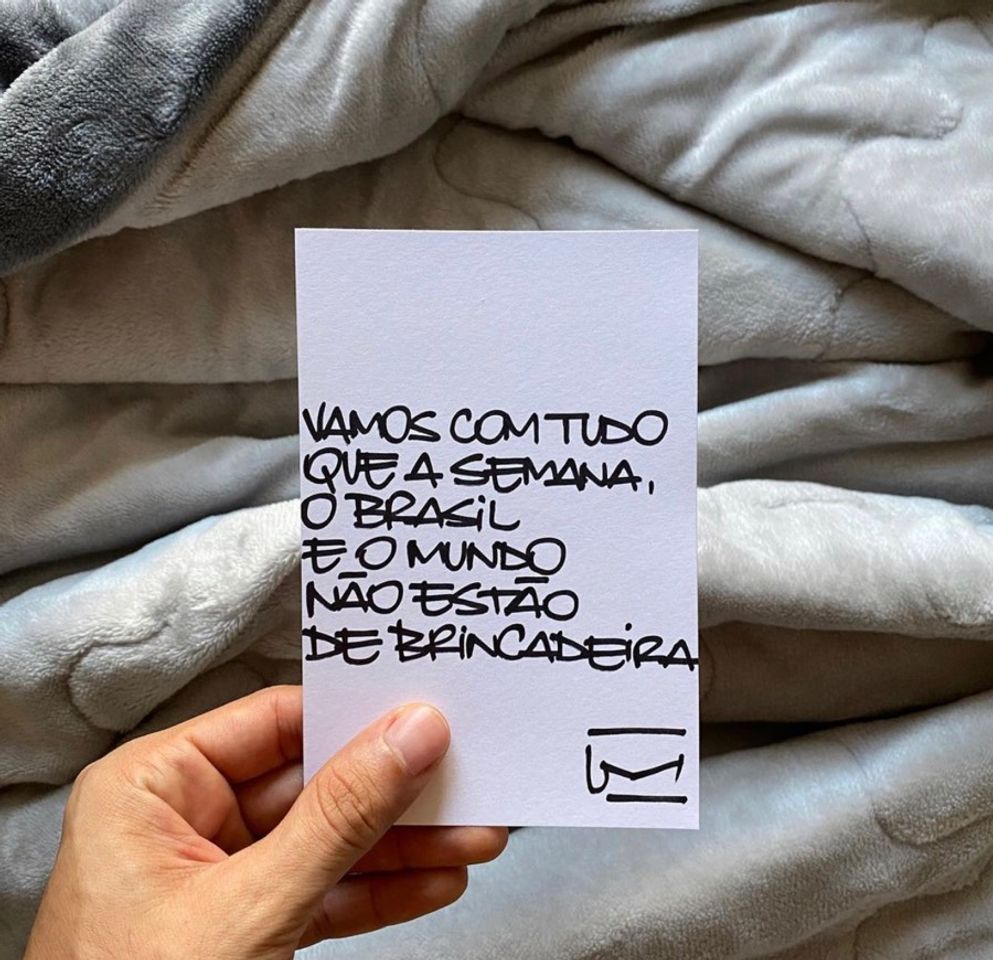 VAMOS COM TUDO
QUE A SEMANA,
O BRASiL
E O MUNDO
NÃO ESTÃO
DE BRiNCADEiRA